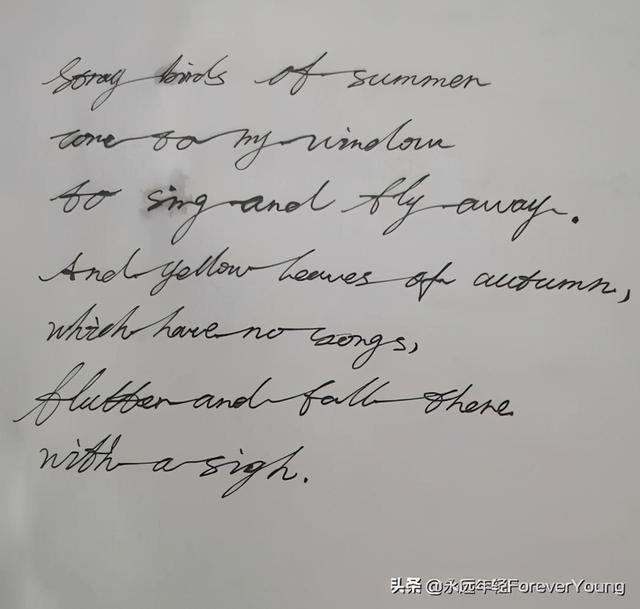 Stray birds of summer
come to my window
to sing and fly away.
And yellow leaves of autumn,
which have no songs,
flutter and fall there
with a sigh.
头条 @永远年轻ForeverYoung